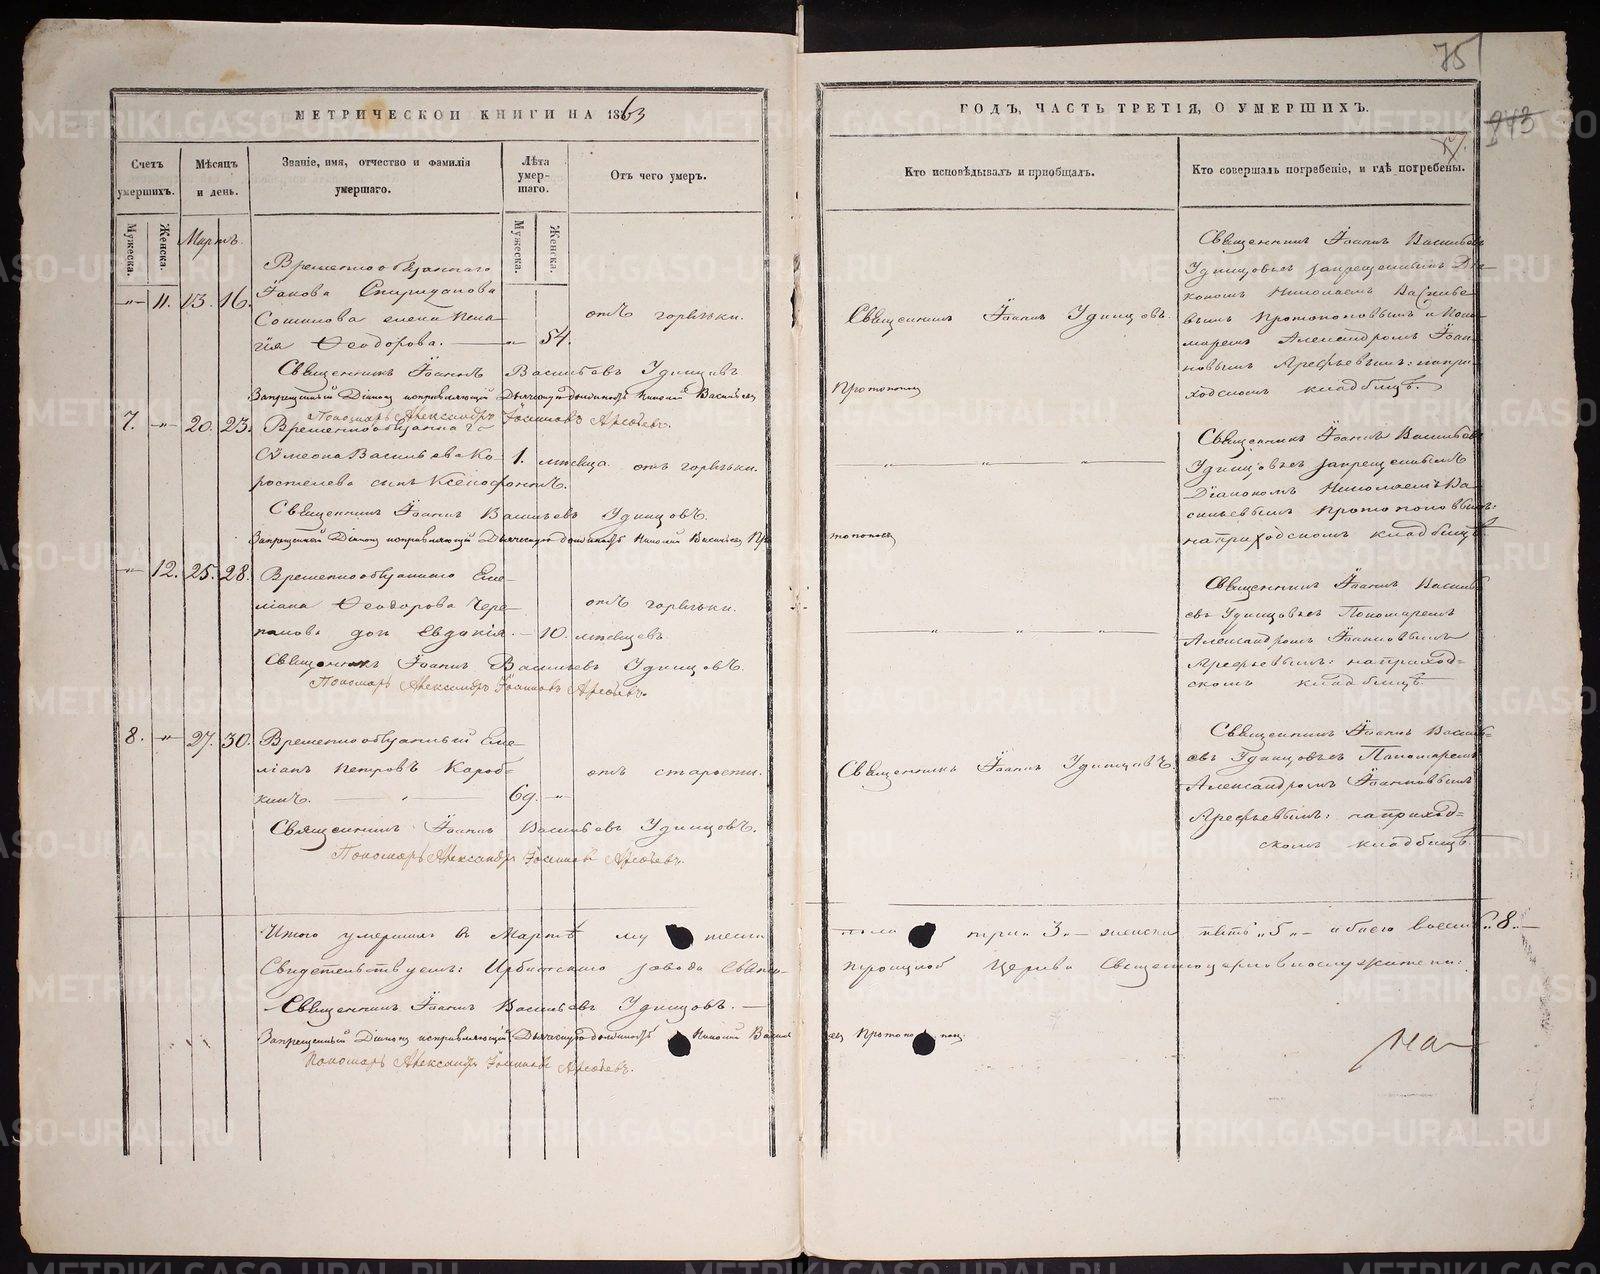 75
МЕТРИЧЕСКОЙ КНИГИ НА 1863
ГОДЪ, ЧАСТЬ ТРЕТІЯ, О УМЕРШИХЪ.
243
Счетъ умершихъ.
Мѣсяцъ и день.
Званіе, имя, отчество и фамилія умершаго.
Лѣта умер-
шаго.
Отъ чего умеръ.
Кто исповѣдывалъ и пріобщалъ.
Кто совершалъ погребеніе, и гдѣ погребены.
Мужеска.
Женска.
Мартъ.
Мужеска.
Женска.
Временнообязаннаго
Іакова Спиридонова
-"- 11. 13. 16.
Сошилова жена Пела-
гія Ѳеодорова. " 54.
отъ горячки.
Священникъ Іоаннъ Удинцовъ.
Священникъ Іоаннъ Васильевъ
Удинцовъ съ запрещеннымъ Діа-
кономъ Николаемъ Василье-
вымъ Протопоповымъ и Поно-
маремъ Александромъ Іоан-
новымъ Арефьевымъ: на при-
ходскомъ кладбищѣ.
Священникъ Іоаннъ Васильевъ Удинцовъ
Запрещенный Діаконъ исправляющій Дьяческую должность Николай Васильевъ Протопоповъ
Пономарь Александръ Іоанновъ Арефьевъ.
7. -"- 20. 23. Временнообязаннаго
Симеона Васильева Ко-
ростелева сынъ Ксенофонтъ.
1. мѣсяца. отъ горячки.
" " "
Священникъ Іоаннъ Васильевъ
Удинцовъ съ запрещеннымъ
Діакономъ Николаемъ Ва-
сильевымъ Протопоповымъ:
на приходскомъ кладбищѣ.
Священникъ Іоаннъ Васильевъ Удинцовъ.
Запрещенный Діаконъ исправляющій Дьяческую должность Николай Васильевъ Протопоповъ
-"- 12. 25. 28. Временнообязаннаго Еме-
ліана Ѳеодорова Чере-
панова дочь Евдокія. 10. мѣсяцевъ.
отъ горячки.
" " "
Священникъ Іоаннъ Василь-
евъ Удинцовъ съ Пономаремъ
Александромъ Іоанновымъ
Арефьевымъ: на приход-
скомъ кладбищѣ.
Священникъ Іоаннъ Васильевъ Удинцовъ.
Пономарь Александръ Іоанновъ Арефьевъ.
8. -"- 27. 30. Временнообязанный Еме-
ліанъ Петровъ Короб-
кинъ. 69. -"-
отъ старости.
Священникъ Іоаннъ Удинцовъ.
Священникъ Іоаннъ Василь-
евъ Удинцовъ съ Пономаремъ
Александромъ Іоанновымъ
Арефьевымъ: на приход-
скомъ кладбищѣ.
Священникъ Іоаннъ Васильевъ Удинцовъ.
Пономарь Александръ Іоанновъ Арефьевъ.
Итого умершихъ въ Мартѣ мужеска пола три "3" женска пять "5" обоего всего "8."
Свидетельствуемъ: Ирбитскаго завода Свято-Троицкой Церкви Священноцерковнослужители:
Священникъ Іоаннъ Васильевъ Удинцовъ.
Запрещенный Діаконъ исправляющій Дьяческую должность Николай Васильевъ Протопоповъ
Пономарь Александръ Іоанновъ Арефьевъ.
METRIKI.GASO-URAL.RU